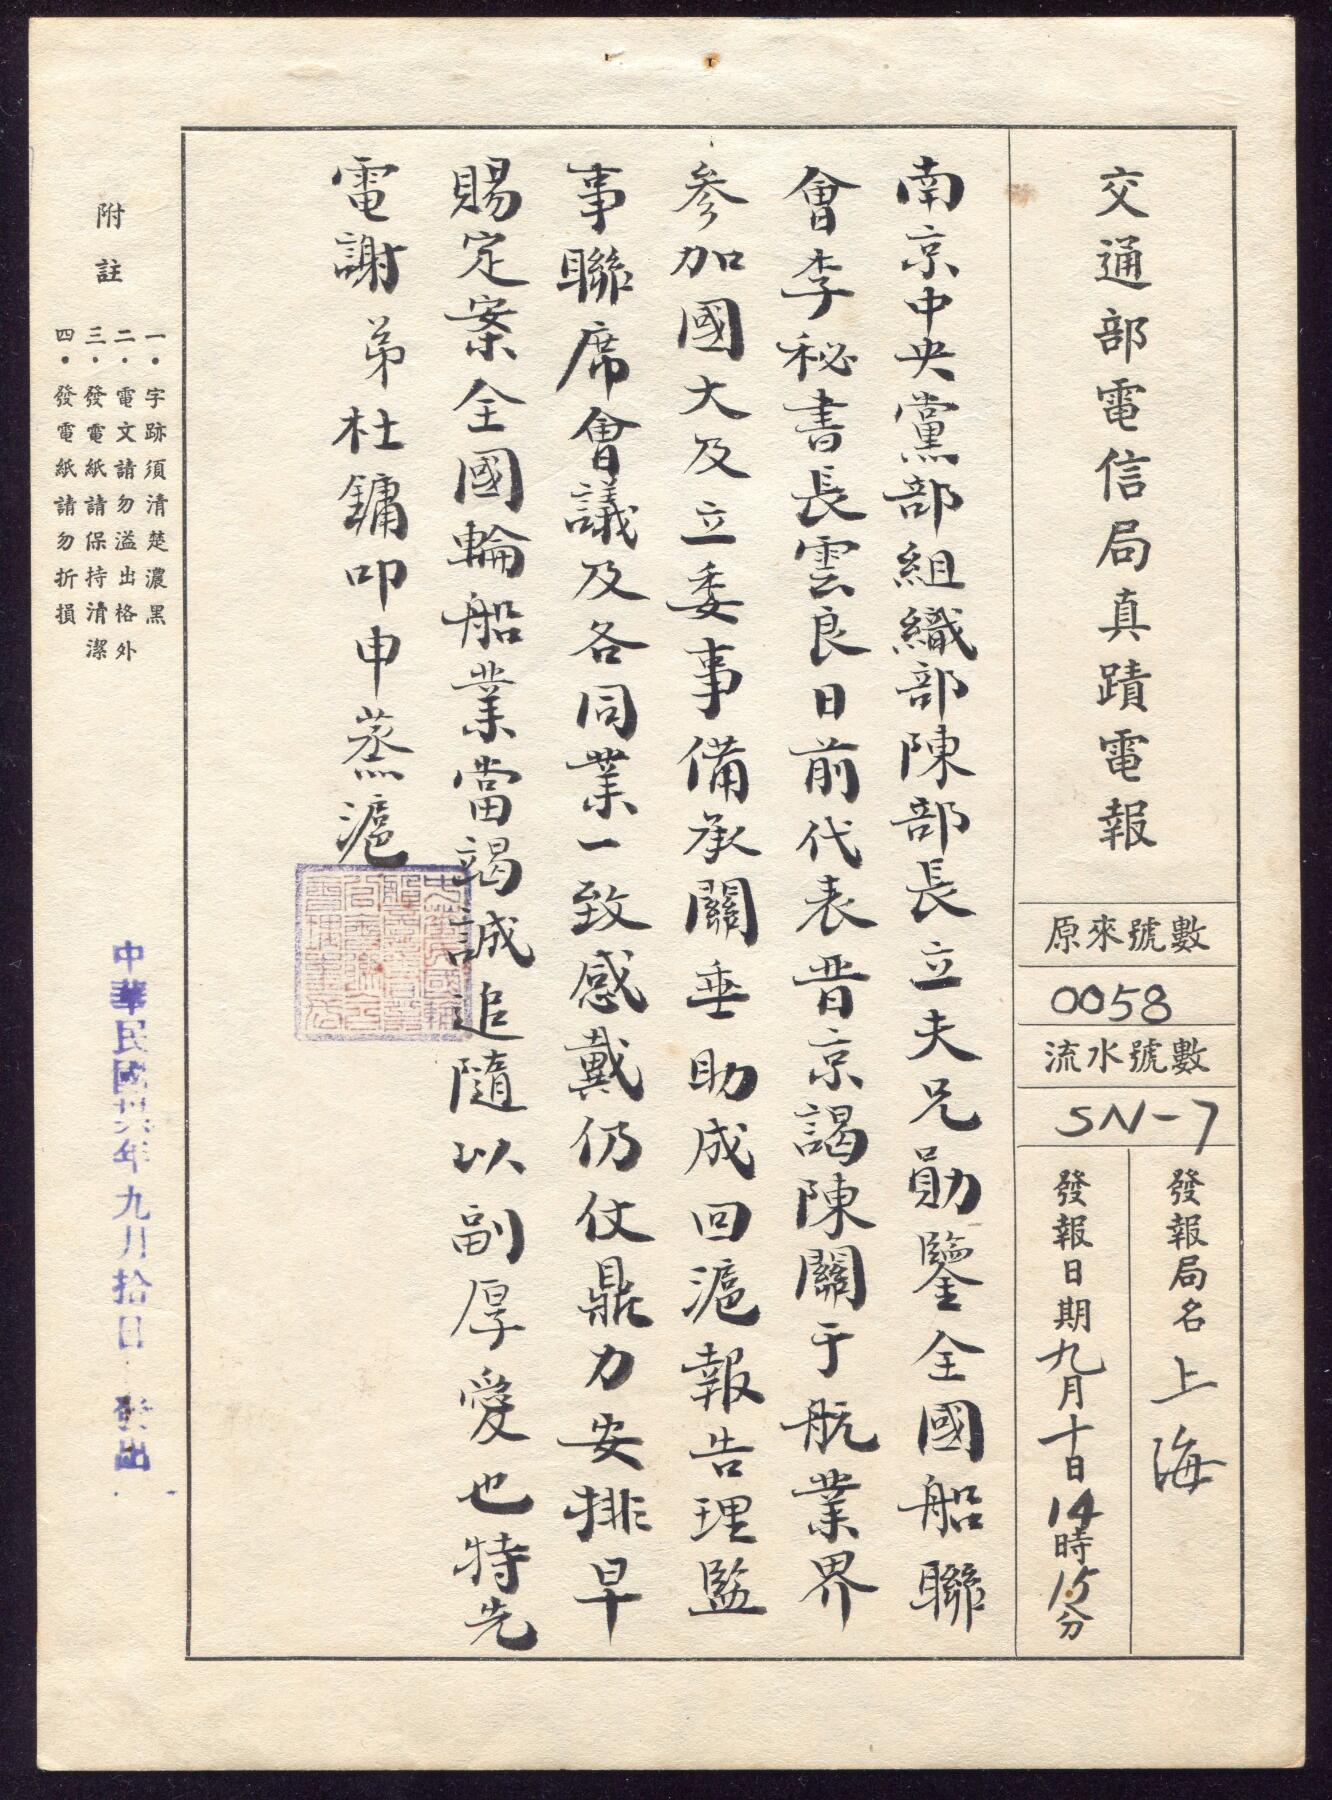 交通部電信局真蹟電報
原來號數
0058
流水號數
SN-7
發報局名 上海
發報日期 九月十日14時15分
南京中央黨部組織部陳部長立夫兄勛鑒全國船聯
會李秘書長雲良日前代表晋京謁陳關于航業界
參加國大及立委事備承關垂助成回滬報告理監
事聯席會議及各同業一致感戴仍仗鼎力安排早
賜定案全國輪船業當竭誠追隨以副厚愛也特先
電謝 弟杜鏞叩申蒸滬
附註
一•字跡須清楚濃黑
二•電文請勿溢出格外
三•發電紙請保持清潔
四•發電紙請勿折損
中華民國卅六年九月拾日 發出